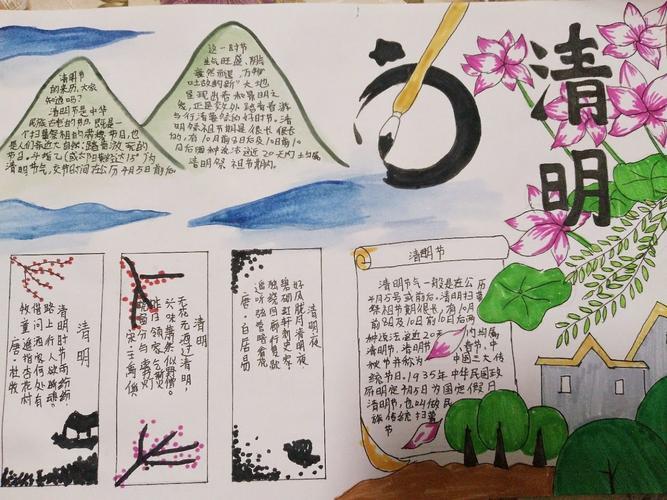 清明
清明节
的来历,大家
知道吗?
清明节是中华
民族古老的节日,既是一
个扫墓祭祖的肃穆节日,也
是人们亲近大自然、踏青游玩的
节日。斗指乙(或太阳黄经达15°)为
清明节气,交节时间在公历4月5日前后
这一时节
生气旺盛、阴气
衰然而退,万物
吐故纳新,大地
呈现出春和景明之
象,正是郊外踏青春游
与行清墓祭的好时节。清
明祭祖节期是很长很长
的,有10日前8日后及10日前10
日后两种说法,这近20天内均属
清明祭祖节期内。
清明
清明时节雨纷纷,
路上行人欲断魂。
借问酒家何处有
牧童遥指杏花村
唐 杜牧
清明
无花无酒过清明,
兴味萧然似野僧。
昨日邻家乞新火
晓窗分与读书灯
宋·王禹偁
清明夜
好风胧月清明夜,
碧砌红轩刺史家。
独绕回廊行复歇
遥听弦管暗看花
唐·白居易
清明节
清明节气一般是在公历
4月5号或前后。清明扫墓
祭祖节期很长,有10日
前8日及10日前10日后两
种说法,这近20天内均属
清明节。清明节、春节、中
秋节并称为中国三大传
统节日。1935年中华民国政
府明定4月5日为国定假日
清明节,也叫做民
族传统扫墓
节